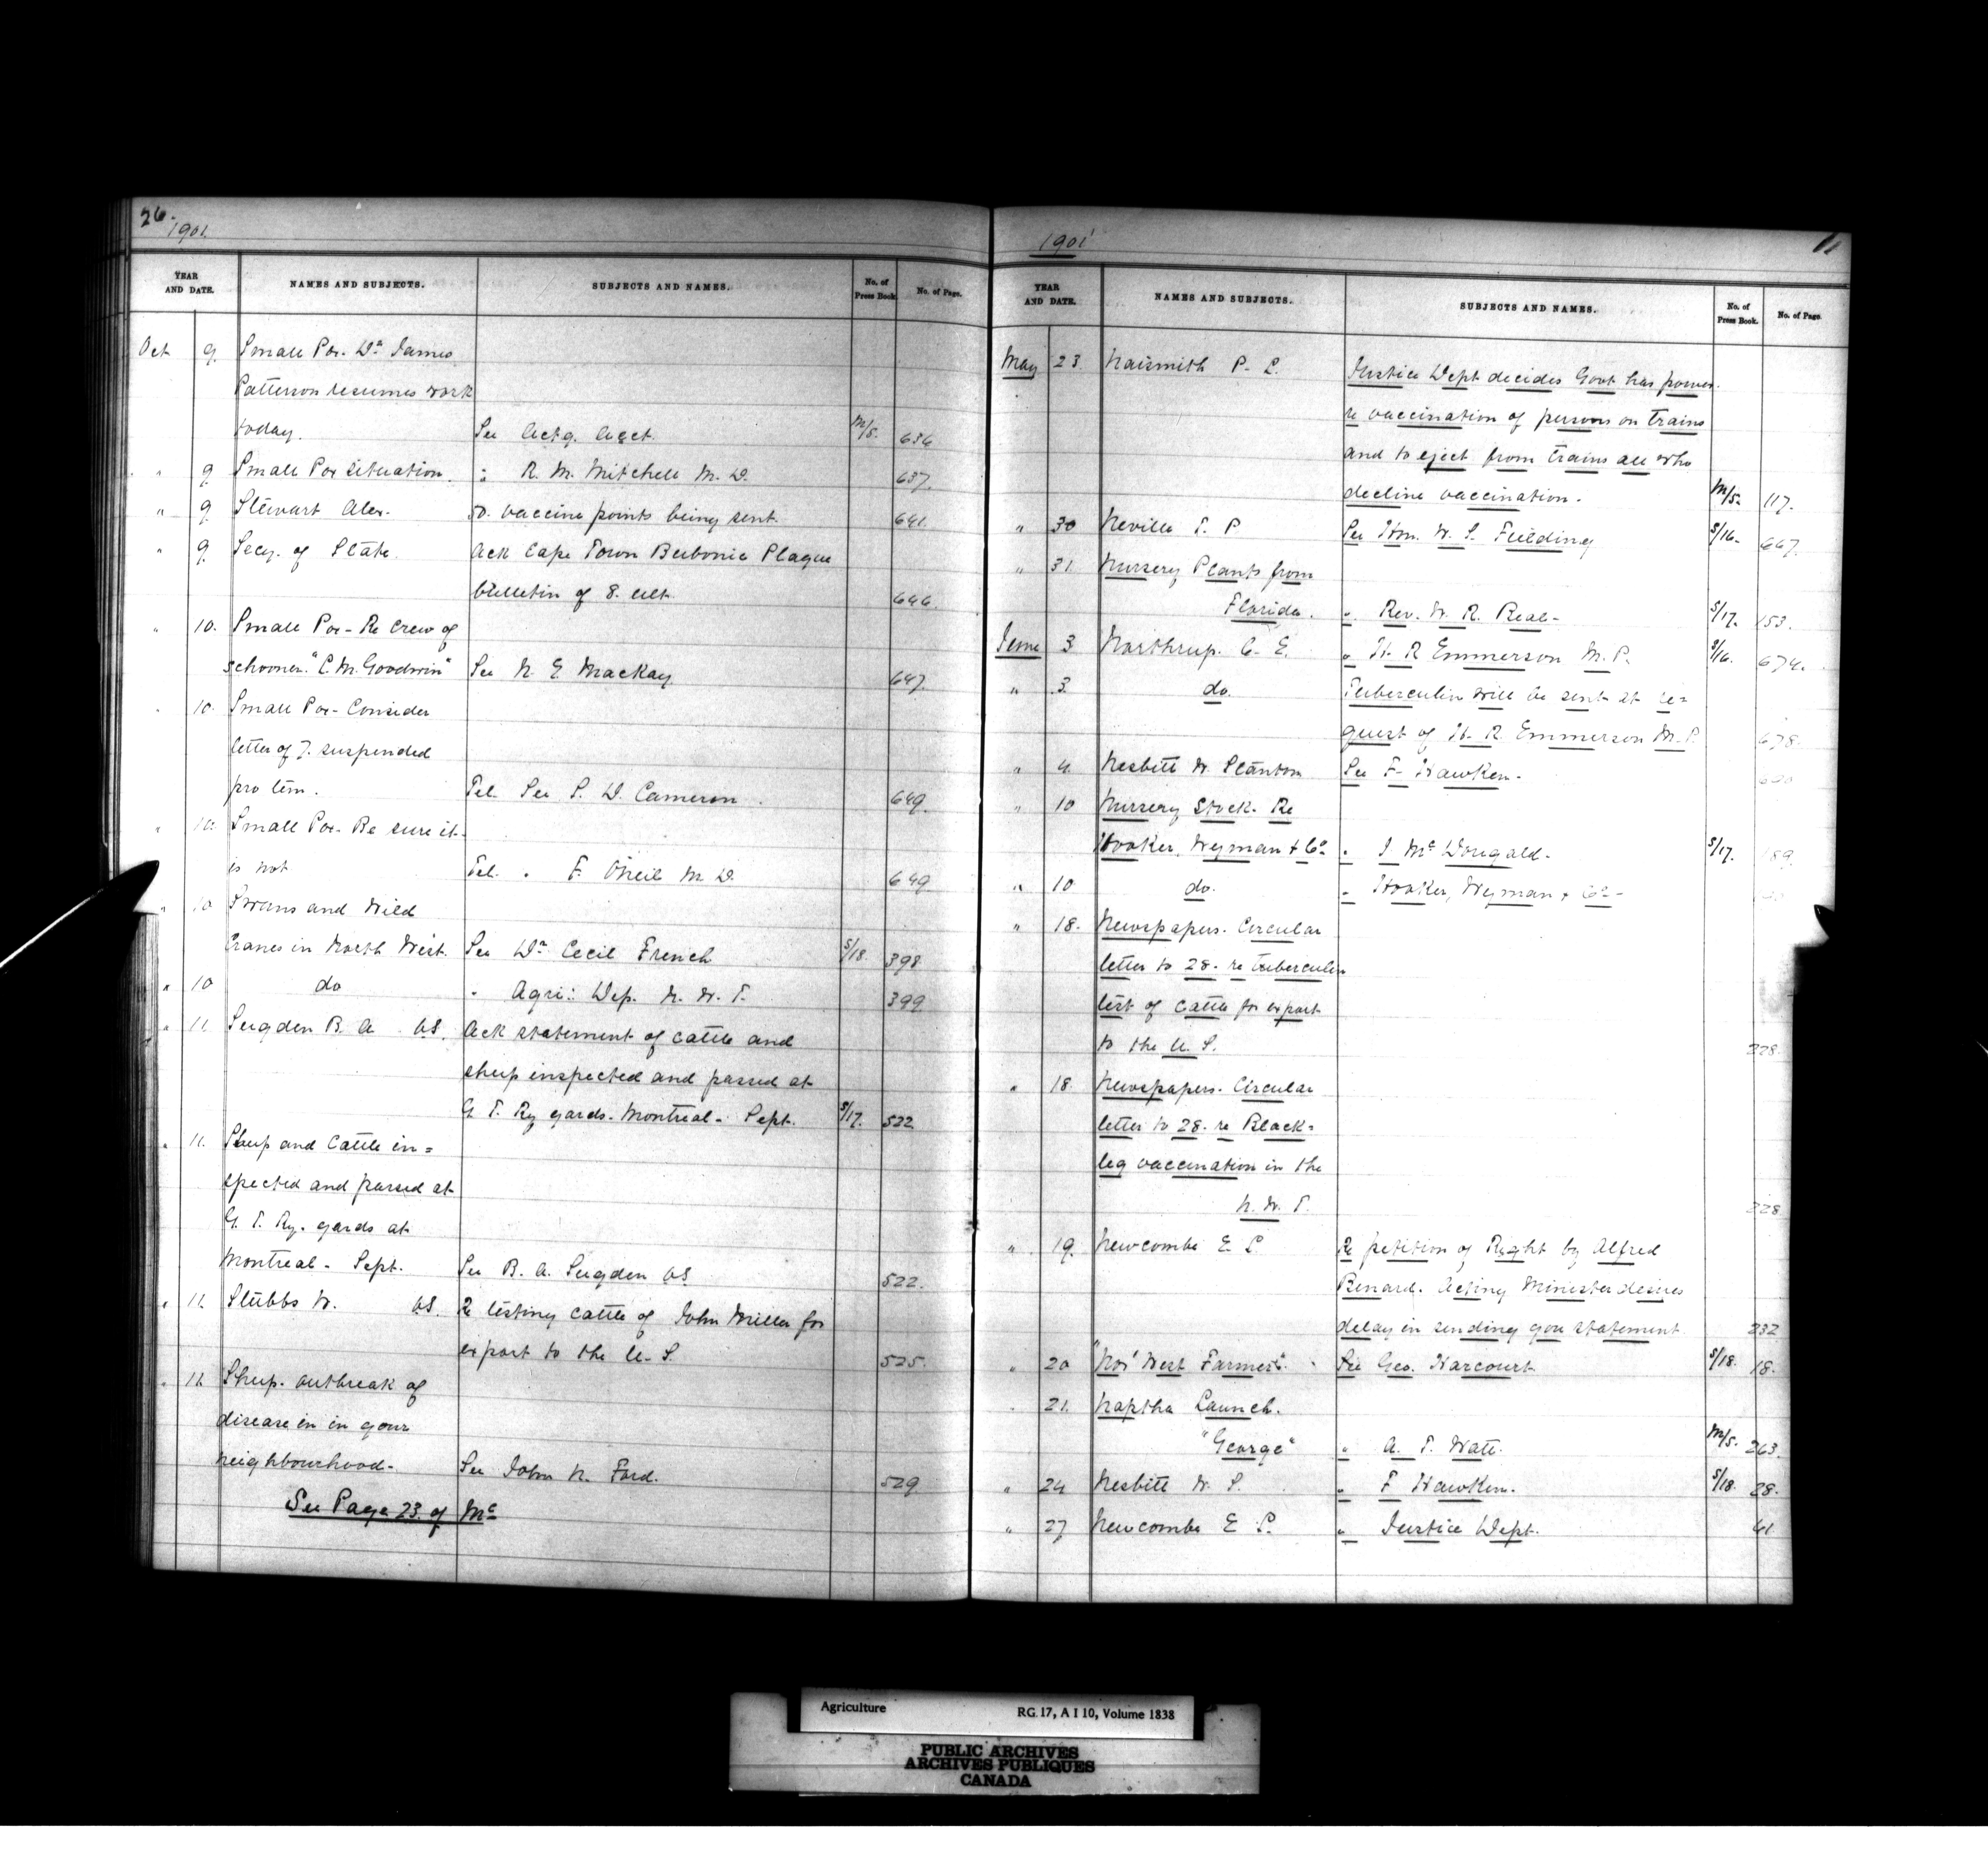 26.
1901.
YEAR AND DATE. NAMES AND SUBJECTS. SUBJECTS AND NAMES. No. of Press Book. No. of Page.
Oct 9. Small Pox. Dr. James
Patterson resumes work
today. See Actg. Acct. M/5. 636
" 9 Small Pox situation. " R. M. Mitchell M. D. 637.
" 9 Stewart Alex. 50. vaccine points being sent. 641.
" 9. Secy. of State. Ack Cape Town Bubonic Plague
bulletin of 8. ult. 646.
" 10. Small Pox - Re Crew of
schooner "C. M. Goodwin" See N. E. Mackay 647.
" 10. Small Pox - Consider
letter of 7. suspended
pro tem. Tel. See S. D. Cameron. 649.
" 10. Small Pox - Be sure it
is not Tel. " F. O'Neil M. D. 649
" 10 Swans and Wild
Cranes in North West. See Dr. Cecil French S/18. 398.
" 10 do " Agri: Dep. N. W. T. 399
" 11. Sugden B. A. VS. Ack statement of cattle and
sheep inspected and passed at
G. T. Ry yards - Montreal - Sept. S/17. 522
" 11. Sheep and Cattle in=
spected and passed at
G. T. Ry. yards at
Montreal - Sept. See B. A. Sugden VS 522.
" 11. Stubbs W. VS. Re testing cattle of John Miller for
export to the U. S. 525.
" 12 Sheep. outbreak of
disease in in your
neighbourhood - See John N. Ford. 529
See Page 23. of Mc
1901
11
YEAR AND DATE. NAMES AND SUBJECTS. SUBJECTS AND NAMES. No. of Press Book. No. of Page.
May 23 Naismith P. L. Justice Dept decides Govt has power
re vaccination of persons on trains
and to eject from trains all who
decline vaccination. M/5. 117.
" 30 Neville T. P. See Hon. W. S. Fielding S/16. 667.
" 31. Nursery Plants from
Florida. " Rev. W. R. Real - S/17. 153.
June 3 Northrup. C. E. " H. R Emmerson M. P. S/16. 674.
" 3. do. Tuberculin will be sent at re=
quest of H. R. Emmerson M. P. 678.
" 4. Nesbitt W. Stanton See F. Hawken.
" 10 Nursery Stock. Re
Hooker, Wyman & Co. " J. McDougald - S/17. 189.
" 10 do. " Hooker, Wyman & Co -
" 18. Newspapers. Circular
letter to 28. re tuberculin
test of cattle for export
to the U. S. 228.
" 18. Newspapers. Circular
letter to 28. re Black=
leg vaccination in the
N. W. T. 228
" 19. Newcombe E. L. Re petition of Right by Alfred
Benard. Acting Minister desires
delay in sending you statement 232
" 20 "Nor' West Farmer". See Geo. Harcourt S/18. 18.
" 21. Naptha Launch.
"George" " A. T. Watt. M/5. 263.
" 24 Nesbitt W. S. " F Hawken. S/18. 28.
" 27 Newcombe E. L. " Justice Dept. 41
Agriculture RG 17, A I 10, Volume 1838
PUBLIC ARCHIVES
ARCHIVES PUBLIQUES
CANADA